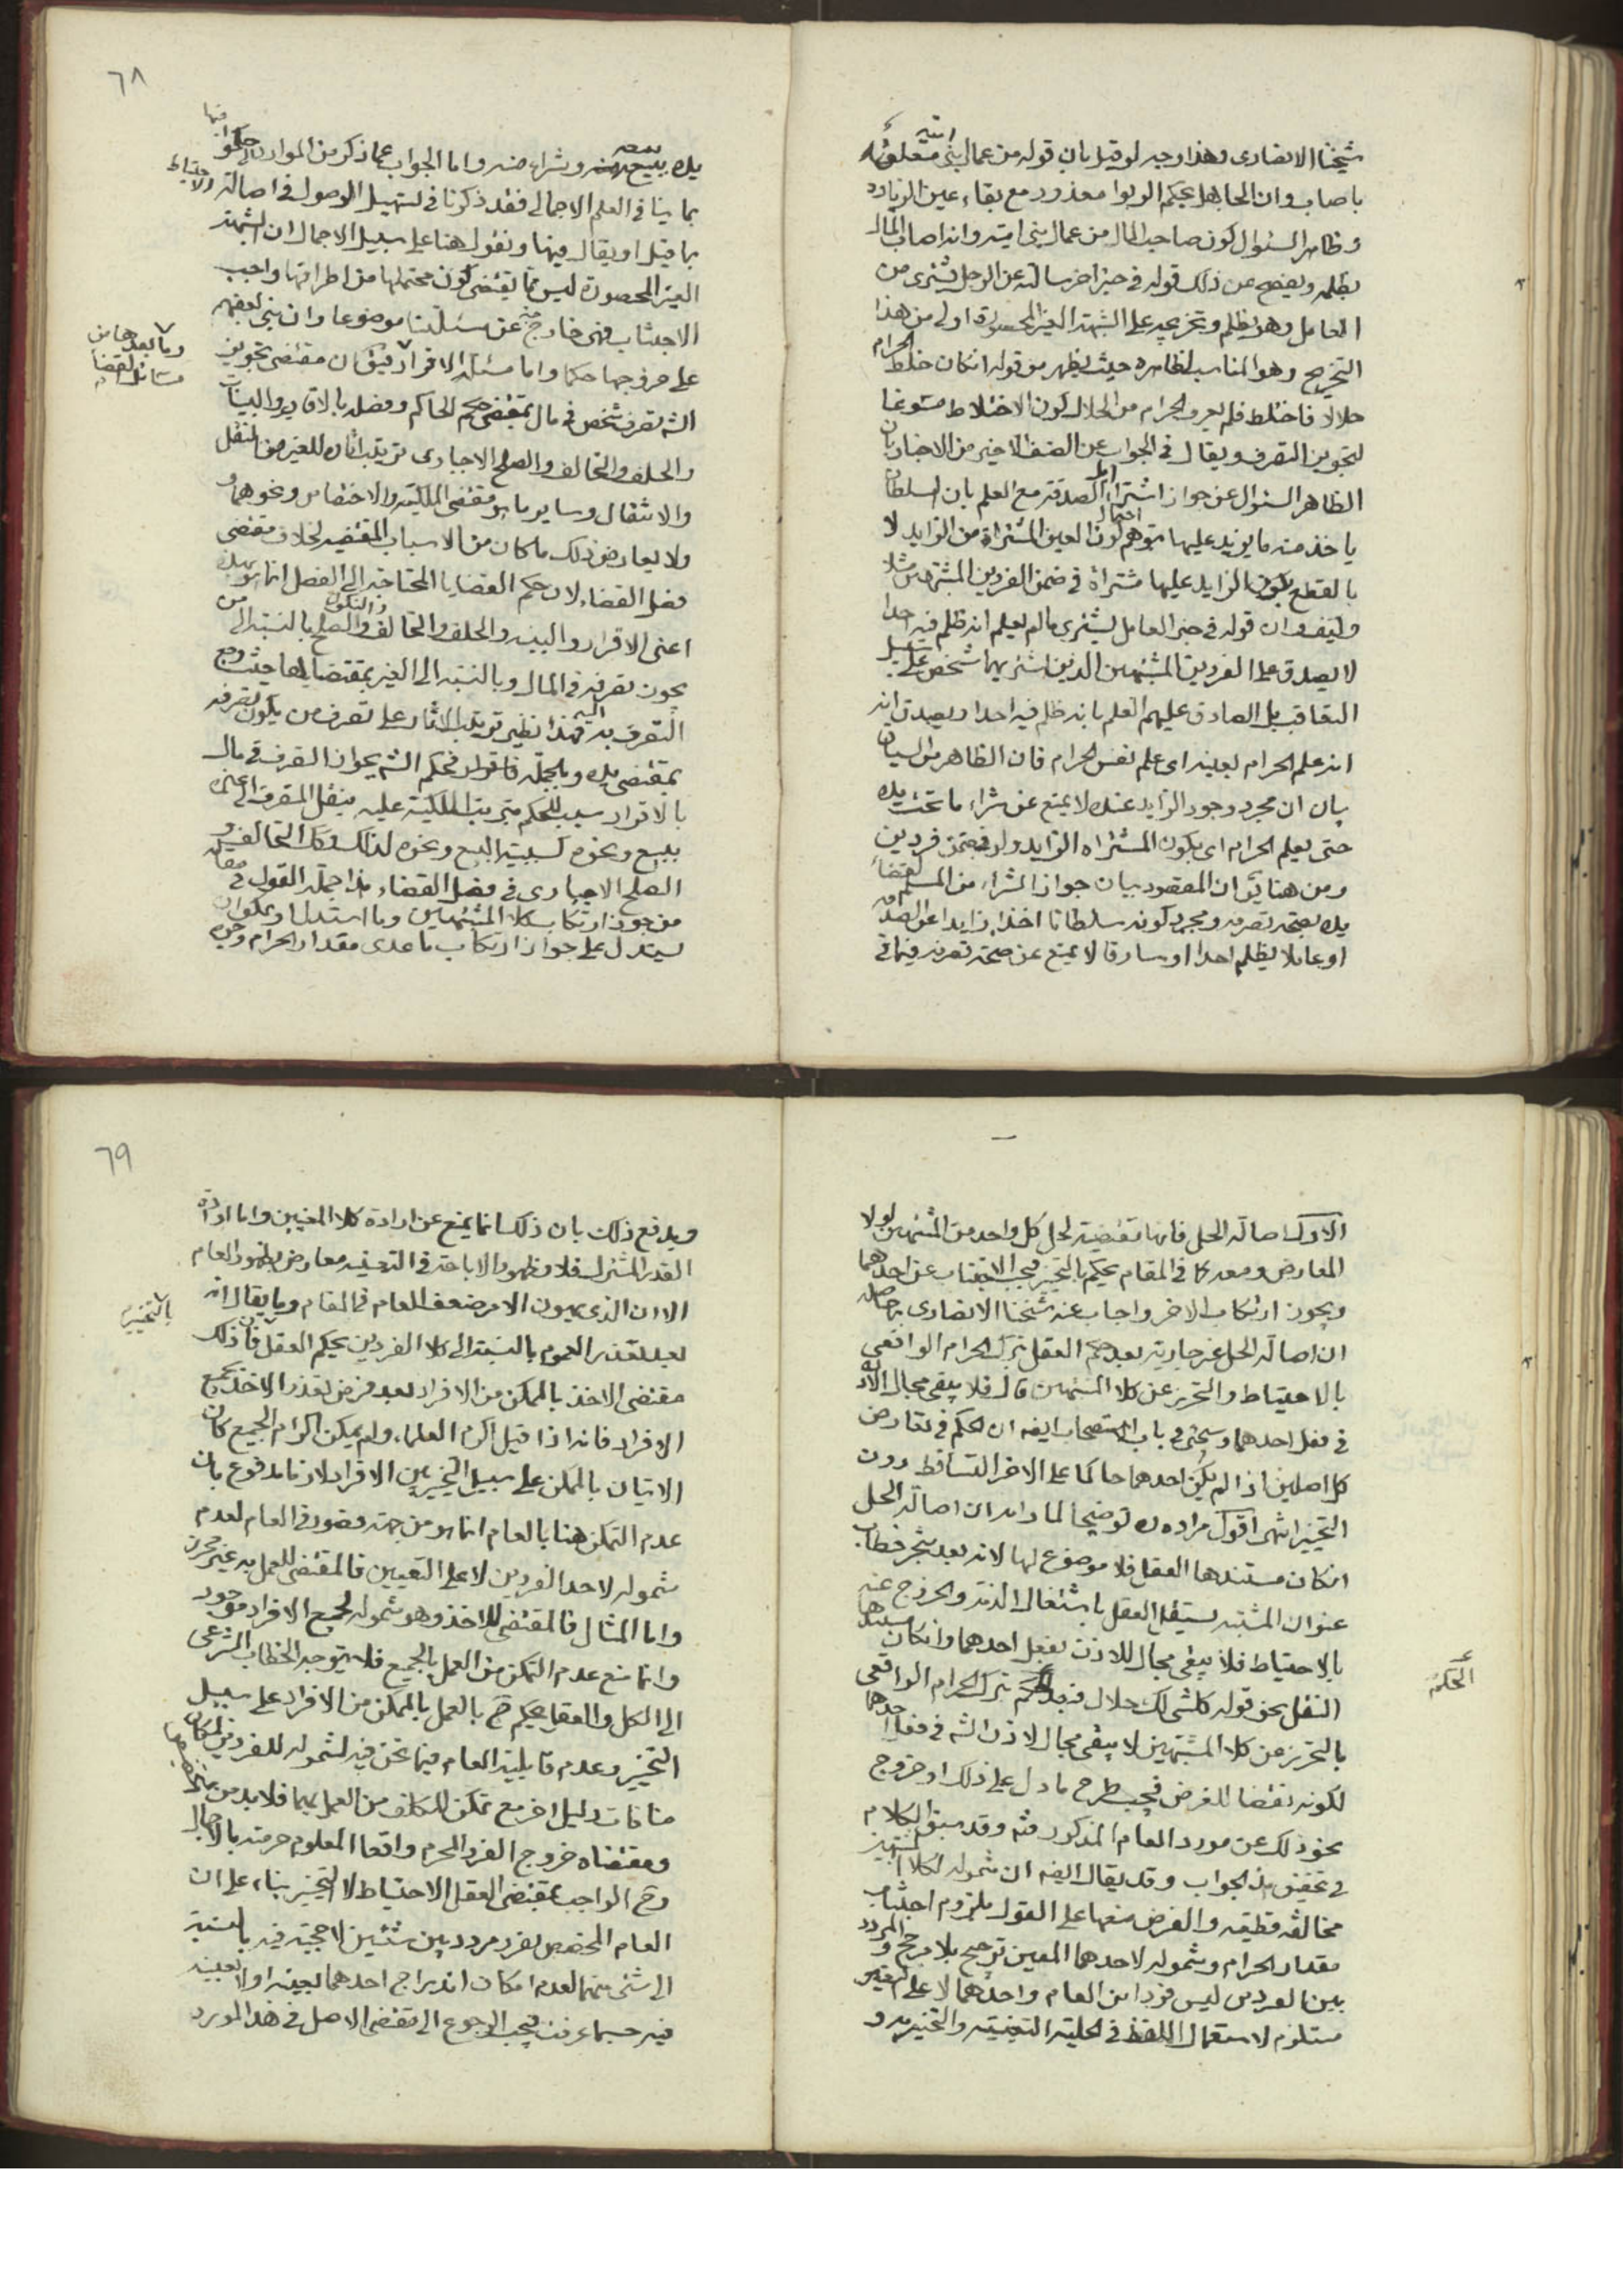 شيخنا الانصاری وهذا وجيه لو قيل بان قوله من عمال بنی امية متعلق
باصاب وان الجاهل بحكم الربوا معذور مع بقاء عين الزيادة
وظاهر السئوال كون صاحب المال من عمال بنی امية وانه اصاب المال
بظلمه ويفصح عن ذلك قوله فی خبر اخر سالته عن الرجل يشتری من
العامل وهو يظلم وتخريجه علی الشبهة الغير المحصورة اولی من هذا
التخريج وهو المناسب لظاهره حيث يظهر من قوله ان كان خلط الحرام
حلالا فاختلط فلم يعرف الحرام من الحلال كون الاختلاط مسوغا
لتجويز التصرف ويقال فی الجواب عن الصنف الاخير من الاخبار بان
الظاهر السئوال عن جواز اشتراء ابل الصدقة مع العلم بان السلطان
ياخذ منه ما يزيد عليها بتوهم احتمال كون العين المشتراة من الزايد لا
بالقطع بكون الزايد عليها مشتراة فی ضمن الفردين المشتبهين مثلا
وكيف وان قوله فی خبر العامل يشتری ما لم يعلم انه ظلم فيه احدا
لا يصدق علی الفردين المشتبهين الذين اشتريهما شخص علی سبيل
التعاقب بل الصادق عليهم العلم بانه ظلم فيه احدا ويصدق انه
انه علم الحرام بعينه ای علم نفس الحرام فان الظاهر من السياق
بيان ان مجرد وجود الزايد عنده لا يمنع عن شراء ما تحت يده
حتی يعلم الحرام ای بكون المشتراه الزايد ولو فی ضمن فردين
ومن هنا ان المقصود بيان جواز الشراء من المسلم لقضاء
يده بصحة تصرفه ومجرد كونه سلطانا اخذا زايدا عن الصدقة
او عاملا يظلم احدا او سارقا لا يمنع عن صحة تصرفه فيما فی
٦٨
يده ببيعه وشراءه منه واما الجواب عما ذكر من الموارد التی حكموا فيها
بما ينافی العلم الاجمالی فقد ذكرنا فی تسهيل الوصول فی اصالة الاحتياط
ما قيل او يقال فيها ونقول هنا علی سبيل الاجمال ان الشبهة
الغير المحصورة ليس مما يقتضی كون محتملها من اطرافها واجب
الاجتناب فهی خارج عن مسئلتنا موضوعا وان بنی بعضهم
علی خروجها حكما واما مسئلة الاقرار فيق ان مقتضی تجويز
وما بعدها من
مسائل القضا
الشه تصرف شخص فی مال بمقتضی حكم الحاكم وفصله بالاقارير والبينات
والحلف والتحالف والصلح الاجباری ترتيب اثاره للغير من النقل
والانتقال وساير ما هو مقتضی الملكية والاختصاص ونحوهما و
ولا يعارض ذلك ما كان من الاسباب المقتضية لخلاف مقتضی
فصل القضاء لان حكم القضايا المحتاجة الی الفصل انما هو بهذه
اعنی الاقرار والبينه والحلف والتحالف والنكول والصلح بالنسبة الی من
يجوز تصرفه فی المال وبالنسبة الی الغير بمقتضايها حيث وجع
التصرف به اليه فهذا نظير ترتيب الاثار علی تصرف من يكون تصرفه
بمقتضی يده وبالجملة فاقرار فی حكم الشه بجواز التصرف فی مال
بالاقرار سبب للحكم بترتيب الملكية عليه بنقل المتصرف الی غيره
ببيع ونحوه كسببية البيع ونحوه لذلك وكذا التحالف و
الصلح الاجباری فی فصل القضاء هذا جملة القول فی مقالة
من جوز ارتكاب كلا المشتبهين وما استدل او يمكن ان
يستدل علی جواز ارتكاب ما عدی مقدار الحرام وجوه
الاول اصالة الحل فانها مقتضية لحل كل واحد من المشتبهين لولا
المعارض ومعه كما فی المقام يحكم بالتخيير فيجب الاجتناب عن احدهما
ويجوز ارتكاب الاخر واجاب عنه شيخنا الانصاری بما حاصله
ان اصالة الحل غير جارية بعد حكم العقل بترك الحرام الواقعی
بالاحتياط والتحرز عن كلا المشتبهين قال فلا يبقی مجال الاذن
فی فعل احدهما وسيجئ فی باب الاستصحاب ايضه ان الحكم فی تعارض
كل اصلين اذا لم يكن احدهما حاكما علی الاخر التساقط دون
التخيير انتهی اقول مراده ره توضيحا لما رامه ان اصالة الحل
ان كان مستندها العقل فلا موضوع لها لانه بعد تنجز خطاب
عنوان المشتبه يستقل العقل باشتغال الذمة والخروج عنه
بالاحتياط فلا يبقی مجال للاذن بفعل احدهما وان كان مستندها
النقل نحو قوله كل شی لك حلال فبعد الحكم بترك الحرام الواقعی
الحكمَ
بالتحرز من كلا المشتبهين لا يبقی مجال لاذن الشه فی فعل احدهما
لكونه نقضا للغرض فيجب طرح ما دل علی ذلك او خروج
نحو ذلك عن مورد العام المذكور فيه وقد سبق الكلام
فی تحقيق هذا الجواب وقد يقال ايضه ان شموله لكلا المشتبهين
مخالفة قطعية والفرض منعها علی القول بلزوم اجتناب
مقدار الحرام وشموله لاحدهما المعين ترجيح بلا مرجح والمردد
بين الفردين ليس فردا من العام واحدهما لا علی التعيين
مستلزم لاستعمال اللفظ فی الحلية التعينية والتخييرية و
٦٩
ويدفع ذلك بان ذلك انما يمنع عن ارادة كلا المعنيين واما ارادة
القدر المشترك فلا وظهور الاباحة فی التعينيه معارض بظهور العام
الا ان الذی يهون الامر ضعف العام فی المقام وما يقال انه
بالتخيير
بعد تعذر العموم بالنسبة الی كلا الفردين يحكم العقل فان ذلك
مقتضی الاخذ بالممكن من الافراد بعد فرض تعذر الاخذ بجميع
الافراد فانه اذا قيل اكرم العلماء ولم يمكن اكرام الجميع كان
الاتيان بالممكن علی سبيل التخيير بين الافراد لازما مدفوع بان
عدم التمكن هنا بالعام انما هو من جهة قصور فی العام لعدم
شموله لاحد الفردين لا علی التعيين فالمقتضی للعمل به غير محرز
واما المثال فالمقتضی للاخذ وهو شموله لجميع الافراد موجود
وانما منع عدم التمكن من العمل بالجميع فلا يتوجه الخطاب الشرعی
الی الكل والعقل يحكم ح بالعمل بالممكن من الافراد علی سبيل
التخيير وعدم قابلية العام فيما نحن فيه لشموله للفردين لمكان
منافات دليل اخر مع تمكن المكلف من العمل بهما فلا بد من تخصيصها
ومقتضاه خروج الفرد المحرم واقعا المعلوم حرمته بالاجمال
وح الواجب بمقتضی العقل الاحتياط لا التخيير بناء علی ان
العام المخصص بفرد مردد بين شيئين لا حجية فيه بالنسبة
الی شئ منهما لعدم امكان اندراج احدهما بعينه او لا بعينه
فيه حسبما عرفت فيجب الرجوع الی مقتضی الاصل فی هذا المورد